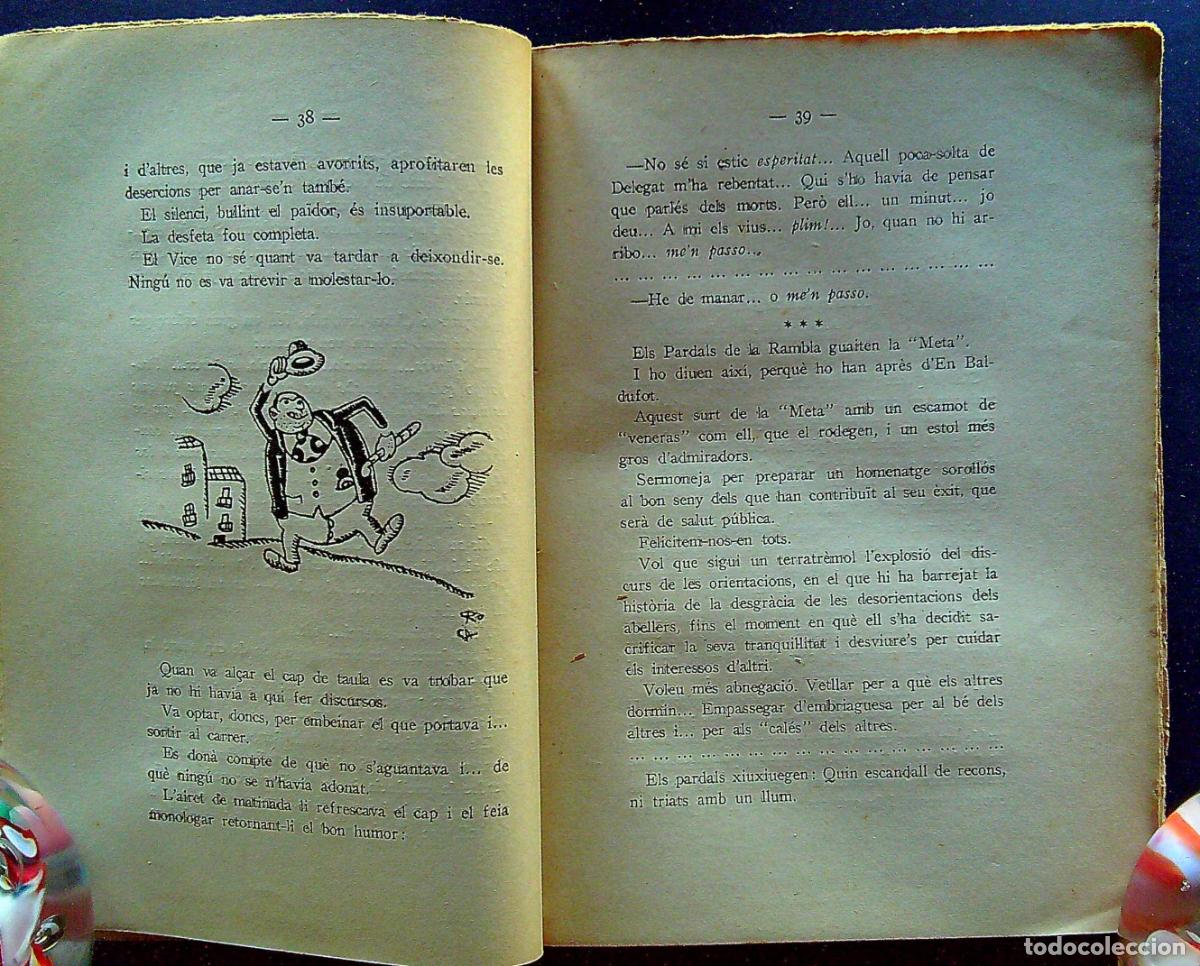 — 38 —
i d'altres, que ja estaven avorrits, aprofitaren les
desercions per anar-se'n també.
El silenci, bullint el païdor, és insuportable.
La desfeta fou completa.
El Vice no sé quant va tardar a deixondir-se.
Ningú no es va atrevir a molestar-lo.
Quan va alçar el cap de taula es va trobar que
ja no hi havia a qui fer discursos.
Va optar, doncs, per embeinar el que portava i...
sortir al carrer.
Es donà compte de què no s'aguantava i... de
què ningú no se n'havia adonat.
L'airet de matinada li refrescava el cap i el feia
monologar retornant-li el bon humor:
— 39 —
—No sé si estic esperitat... Aquell poca-solta de
Delegat m'ha rebentat... Qui s'ho havia de pensar
que parlés dels morts. Però ell... un minut... jo
deu... A mi els vius... plim!... Jo, quan no hi ar-
ribo... me'n passo...
... ... ... ... ... ... ... ... ... ... ... ... ... ... ... ...
—He de manar... o me'n passo.
* * *
Els Pardals de la Rambla guaiten la "Meta".
I ho diuen així, perquè ho han après d'En Bal-
dufot.
Aquest surt de la "Meta" amb un escamot de
"veneras" com ell, que el rodegen, i un estol més
gros d'admiradors.
Sermoneja per preparar un homenatge sorollós
al bon seny dels que han contribuït al seu èxit, que
serà de salut pública.
Felicitem-nos-en tots.
Vol que sigui un terratrèmol l'explosió del dis-
curs de les orientacions, en el que hi ha barrejat la
història de la desgràcia de les desorientacions dels
abellers, fins el moment en què ell s'ha decidit sa-
crificar la seva tranquillitat i desviure's per cuidar
els interessos d'altri.
Voleu més abnegació. Vetllar per a què els altres
dormin... Empassegar d'embriaguesa per al bé dels
altres i... per als "calés" dels altres.
... ... ... ... ... ... ... ... ... ... ... ... ... ... ... ...
Els pardals xiuxiuegen: Quin escandall de recons,
ni triats amb un llum.
todocoleccion